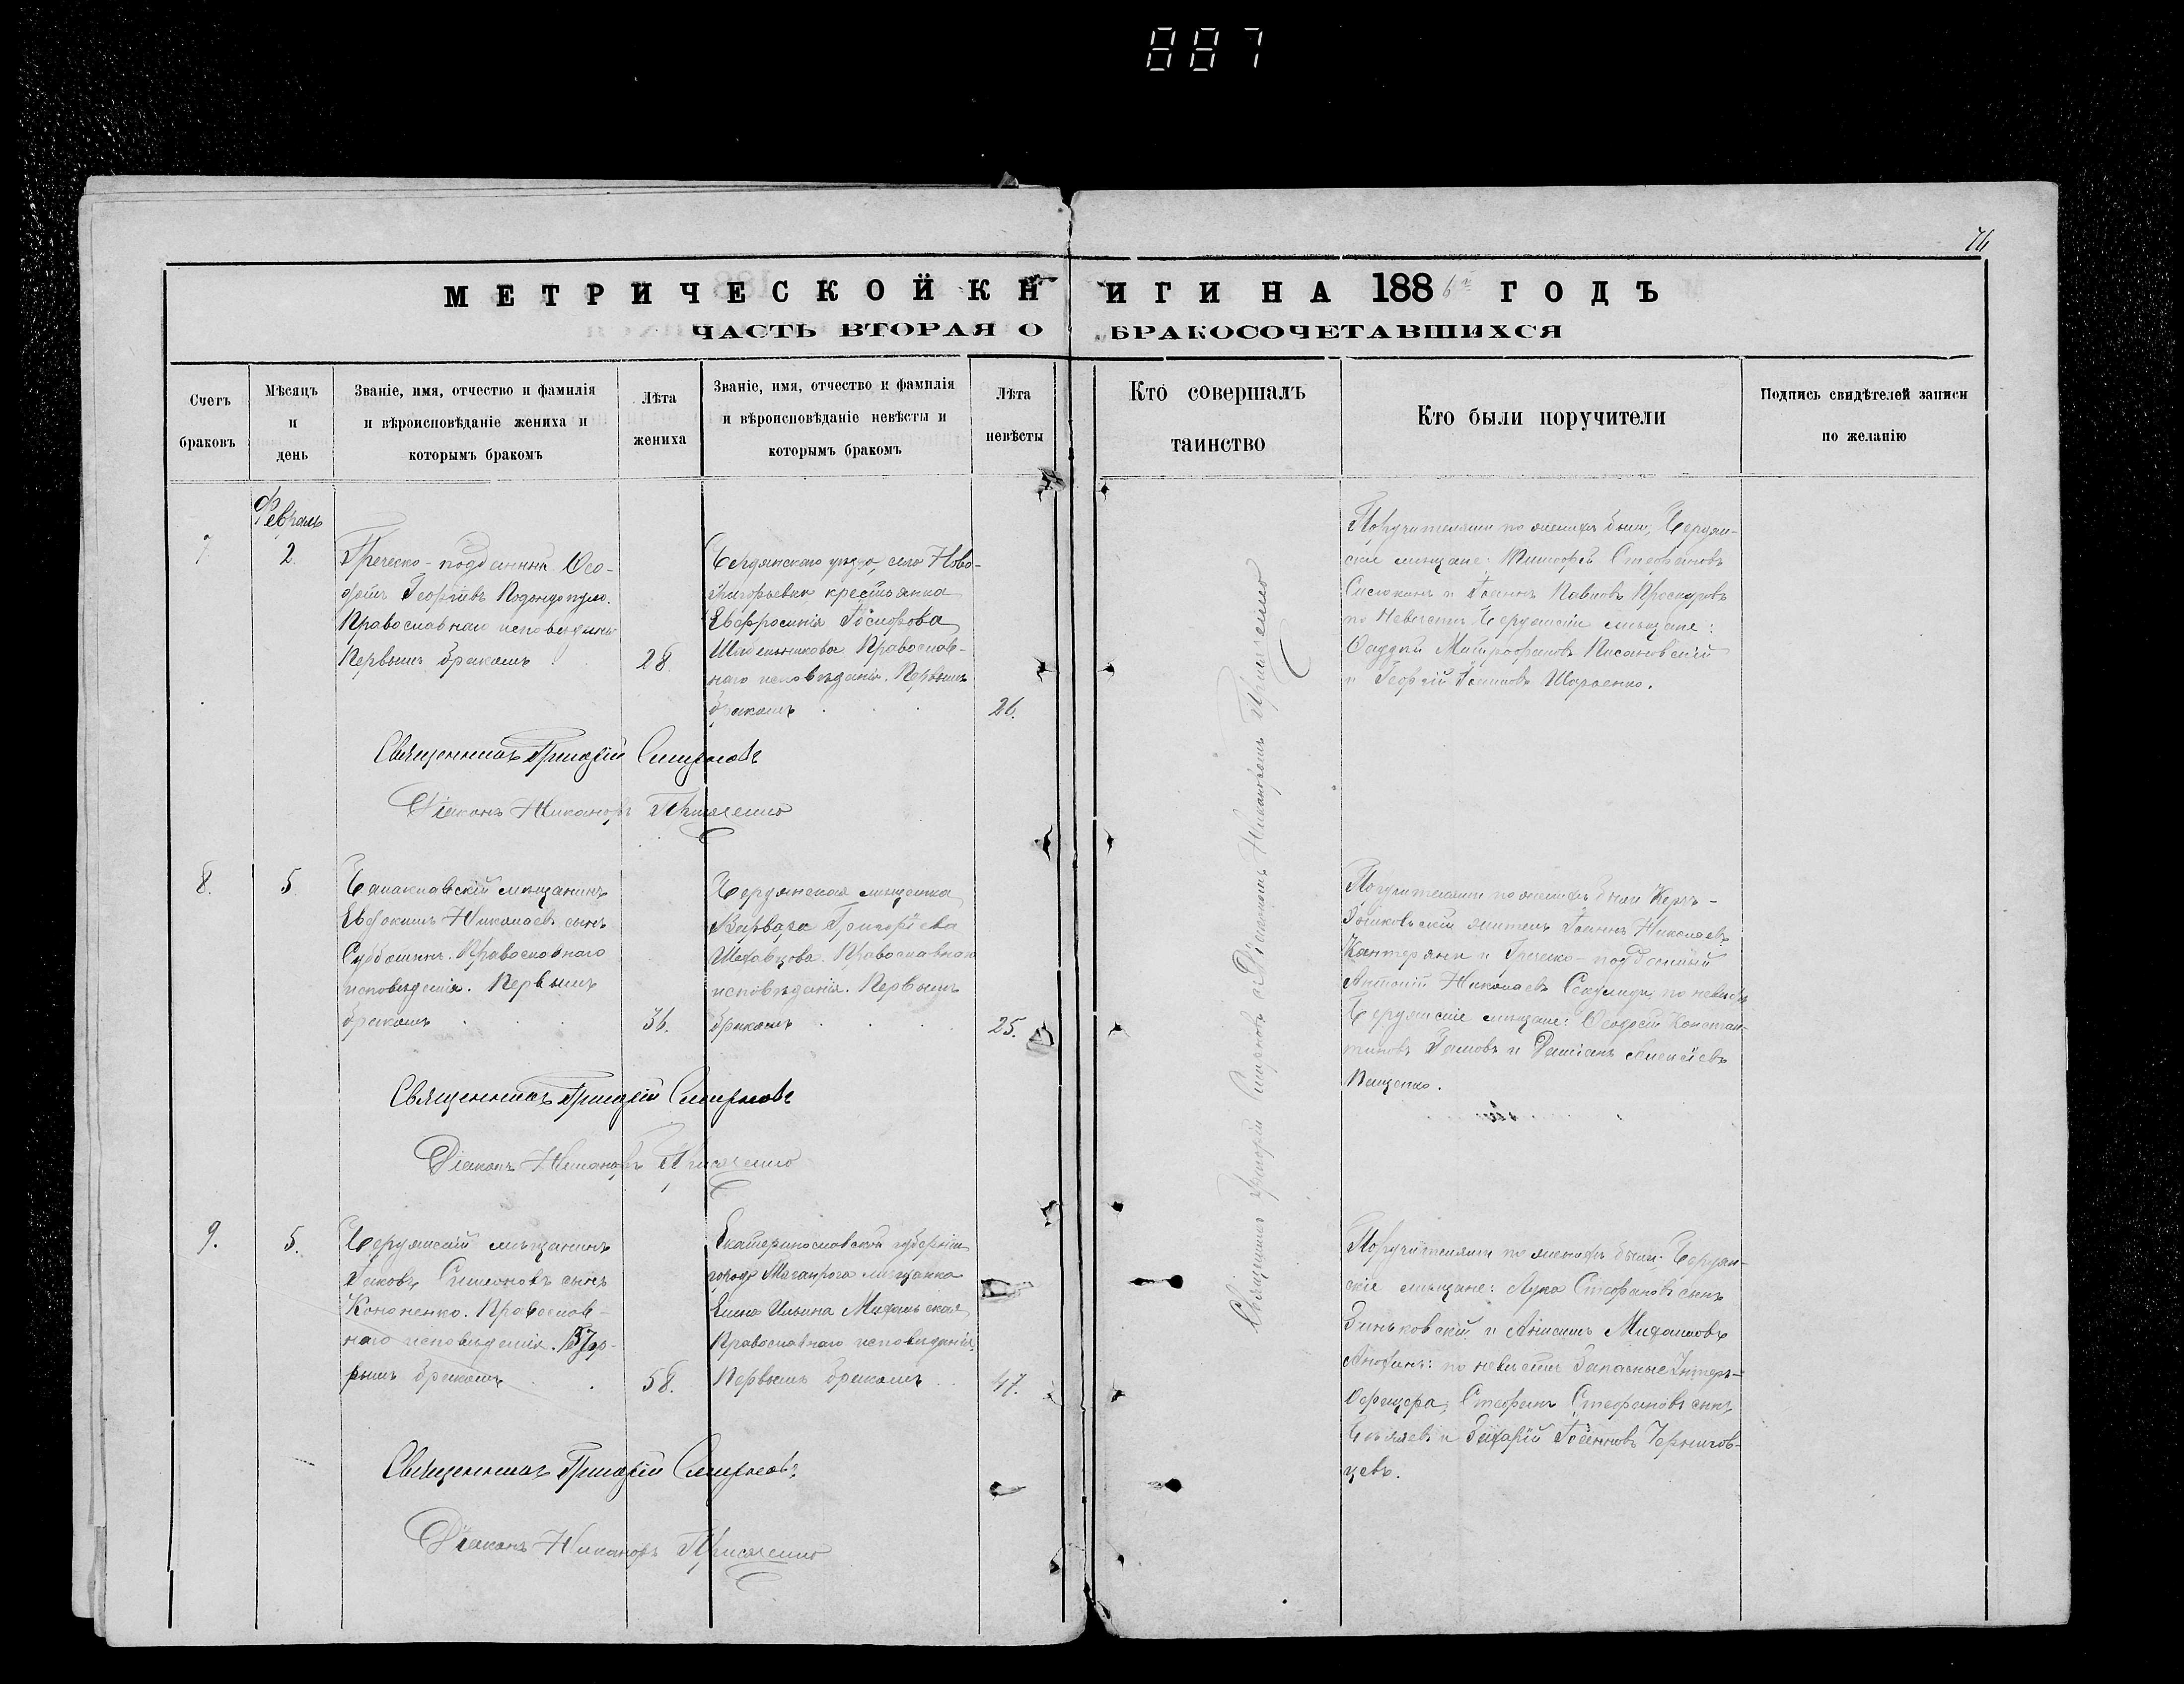 887
76
МЕТРИЧЕСКОЙ КНИГИ НА 1886й ГОДЪ
ЧАСТЬ ВТОРАЯ О БРАКОСОЧЕТАВШИХСЯ
Счетъ браковъ
Мѣсяцъ и день
Званіе, имя, отчество и фамилія и вѣроисповѣданіе жениха и которымъ бракомъ
Лѣта жениха
Званіе, имя, отчество и фамилія и вѣроисповѣданіе невѣсты и которымъ бракомъ
Лѣта невѣсты
Кто совершалъ таинство
Кто были поручители
Подпись свидѣтелей записи по желанію
Февраль
7
2.
Греческо-подданный
Георгіевъ
Православнаго исповѣданія
Первымъ бракомъ
28
Бердянскаго уѣзда, села Ново-
григорьевки крестьянка
Евфросинія Іосифова
Православ-
наго исповѣданія. Первымъ
бракомъ
26.
Поручителями по женихѣ были; Бердян-
скіе мѣщане: Стефановъ
и Іоаннъ Павловъ Проскуровъ
по невѣстѣ Бердянскіе мѣщане:
Митрофановъ Писановскій
и Георгій
Священникъ Григорій Смирновъ
Діаконъ Никаноръ
8.
5
Балаклавскій мѣщанинъ
Евдокимъ Николаевъ сынъ
Субботинъ. Православнаго
исповѣданія. Первымъ
бракомъ
36.
Бердянская мѣщанка
Варвара Григорьева
Шехавцова. Православнаго
исповѣданія. Первымъ
бракомъ
25.
Поручителями по женихѣ были Керчь-
Ениковьскій житель Іоаннъ Николаевъ
и Греческо-подданный
Антоній Николаевъ по невѣстѣ
Бердянскіе мѣщане: Феодосій Констан-
тиновъ и Даміанъ Алексѣевъ
Пащенко.
Священникъ Григорій Смирновъ
Діаконъ Никаноръ
9.
5.
Бердянскій мѣщанинъ
Іаковъ Симеоновъ сынъ
Кононенко. Православ-
наго исповѣданія.
бракомъ
58.
Екатеринославской губерніи
города Таганрога мѣщанка
Ильина
Православнаго исповѣданія.
Первымъ бракомъ
47.
Поручителями по женихѣ были: Бердян-
скіе мѣщане: Лука Стефановъ сынъ
Зиньковскій и Анисимъ Михаиловъ
Анохинъ: по невѣстѣ Запасные Унтеръ-
Офицера, Стефанъ Стефановъ сынъ
и Захарій Іоанновъ Чернигов-
цевъ.
Священникъ Григорій Смирновъ
Діаконъ Никаноръ
Священникъ Григорій Смирновъ съ Діакономъ Никаноромъ